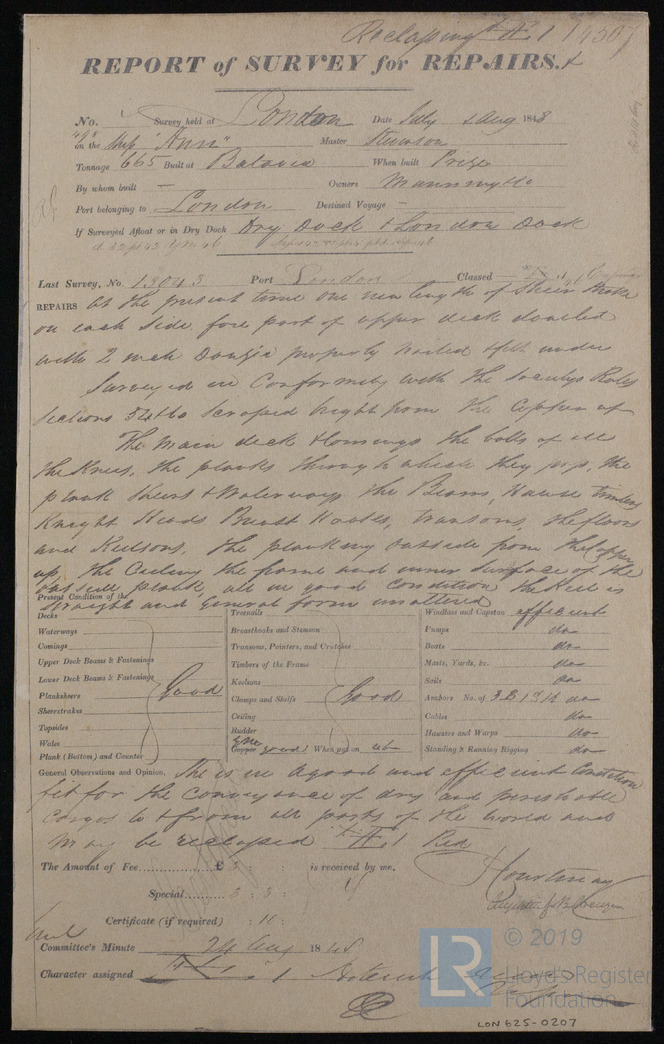 Reclassing Æ 1 14507
REPORT of SURVEY for REPAIRS.
No. Survey held at London Date July & Aug 1848
on the Ship "Ann" Master
Tonnage 665 Built at Batavia When built Prize
By whom built — Owners
Port belonging to London Destined Voyage —
If Surveyed Afloat or in Dry Dock Dry Dock & London Dock
Last Survey, No. 13043 Port London Classed
REPAIRS At the present time one new length of Sheer Strake
on each side, fore part of upper deck doubled
with 2 inch Dantzic properly nailed & felt under
Surveyed in Conformity with the Societys Rules
Sections 54 & 60 scraped bright from the Copper up
The Main deck & Comings the bolts of all
the Knees, the planks through which they pass, the
plank Sheers & Waterways the Beams, Hawse timbers
Knight Heads Breast Hooks, transoms, the floors
and Keelsons, the planking outside from the Copper
up, the Ceiling the frame and inner surface of the
outside plank, all in good Condition the Keel is
straight and General form unaltered
Present Condition of the
Decks
Waterways
Comings
Upper Deck Beams & Fastenings
Lower Deck Beams & Fastenings
Planksheers Good
Sheerstrakes
Topsides
Wales
Plank (Bottom) and Counter
Treenails
Breasthooks and Stemson
Transoms, Pointers, and Crutches
Timbers of the Frame
Keelsons
Clamps and Shelfs Good
Ceiling
Rudder
Copper good When put on
Windlass and Capstan efficient
Pumps do
Boats do
Masts, Yards, &c. do
Sails do
Anchors No. of 3 B 1 S 1 K do
Cables do
Hawsers and Warps do
Standing & Running Rigging do
General Observations and Opinion, She is in a good and efficient Condition
fit for the conveyance of dry and perishable
Cargos to & from all parts of the world and
may be reclassed Æ 1 Red
The Amount of Fee £ 5 : : is received by me,
Special 3 : 3 :
Certificate (if required) :
Committee's Minute 24 Aug 1848
Character assigned Æ 1
© 2019
LR
Lloyd's Register
Foundation
LON 625-0207